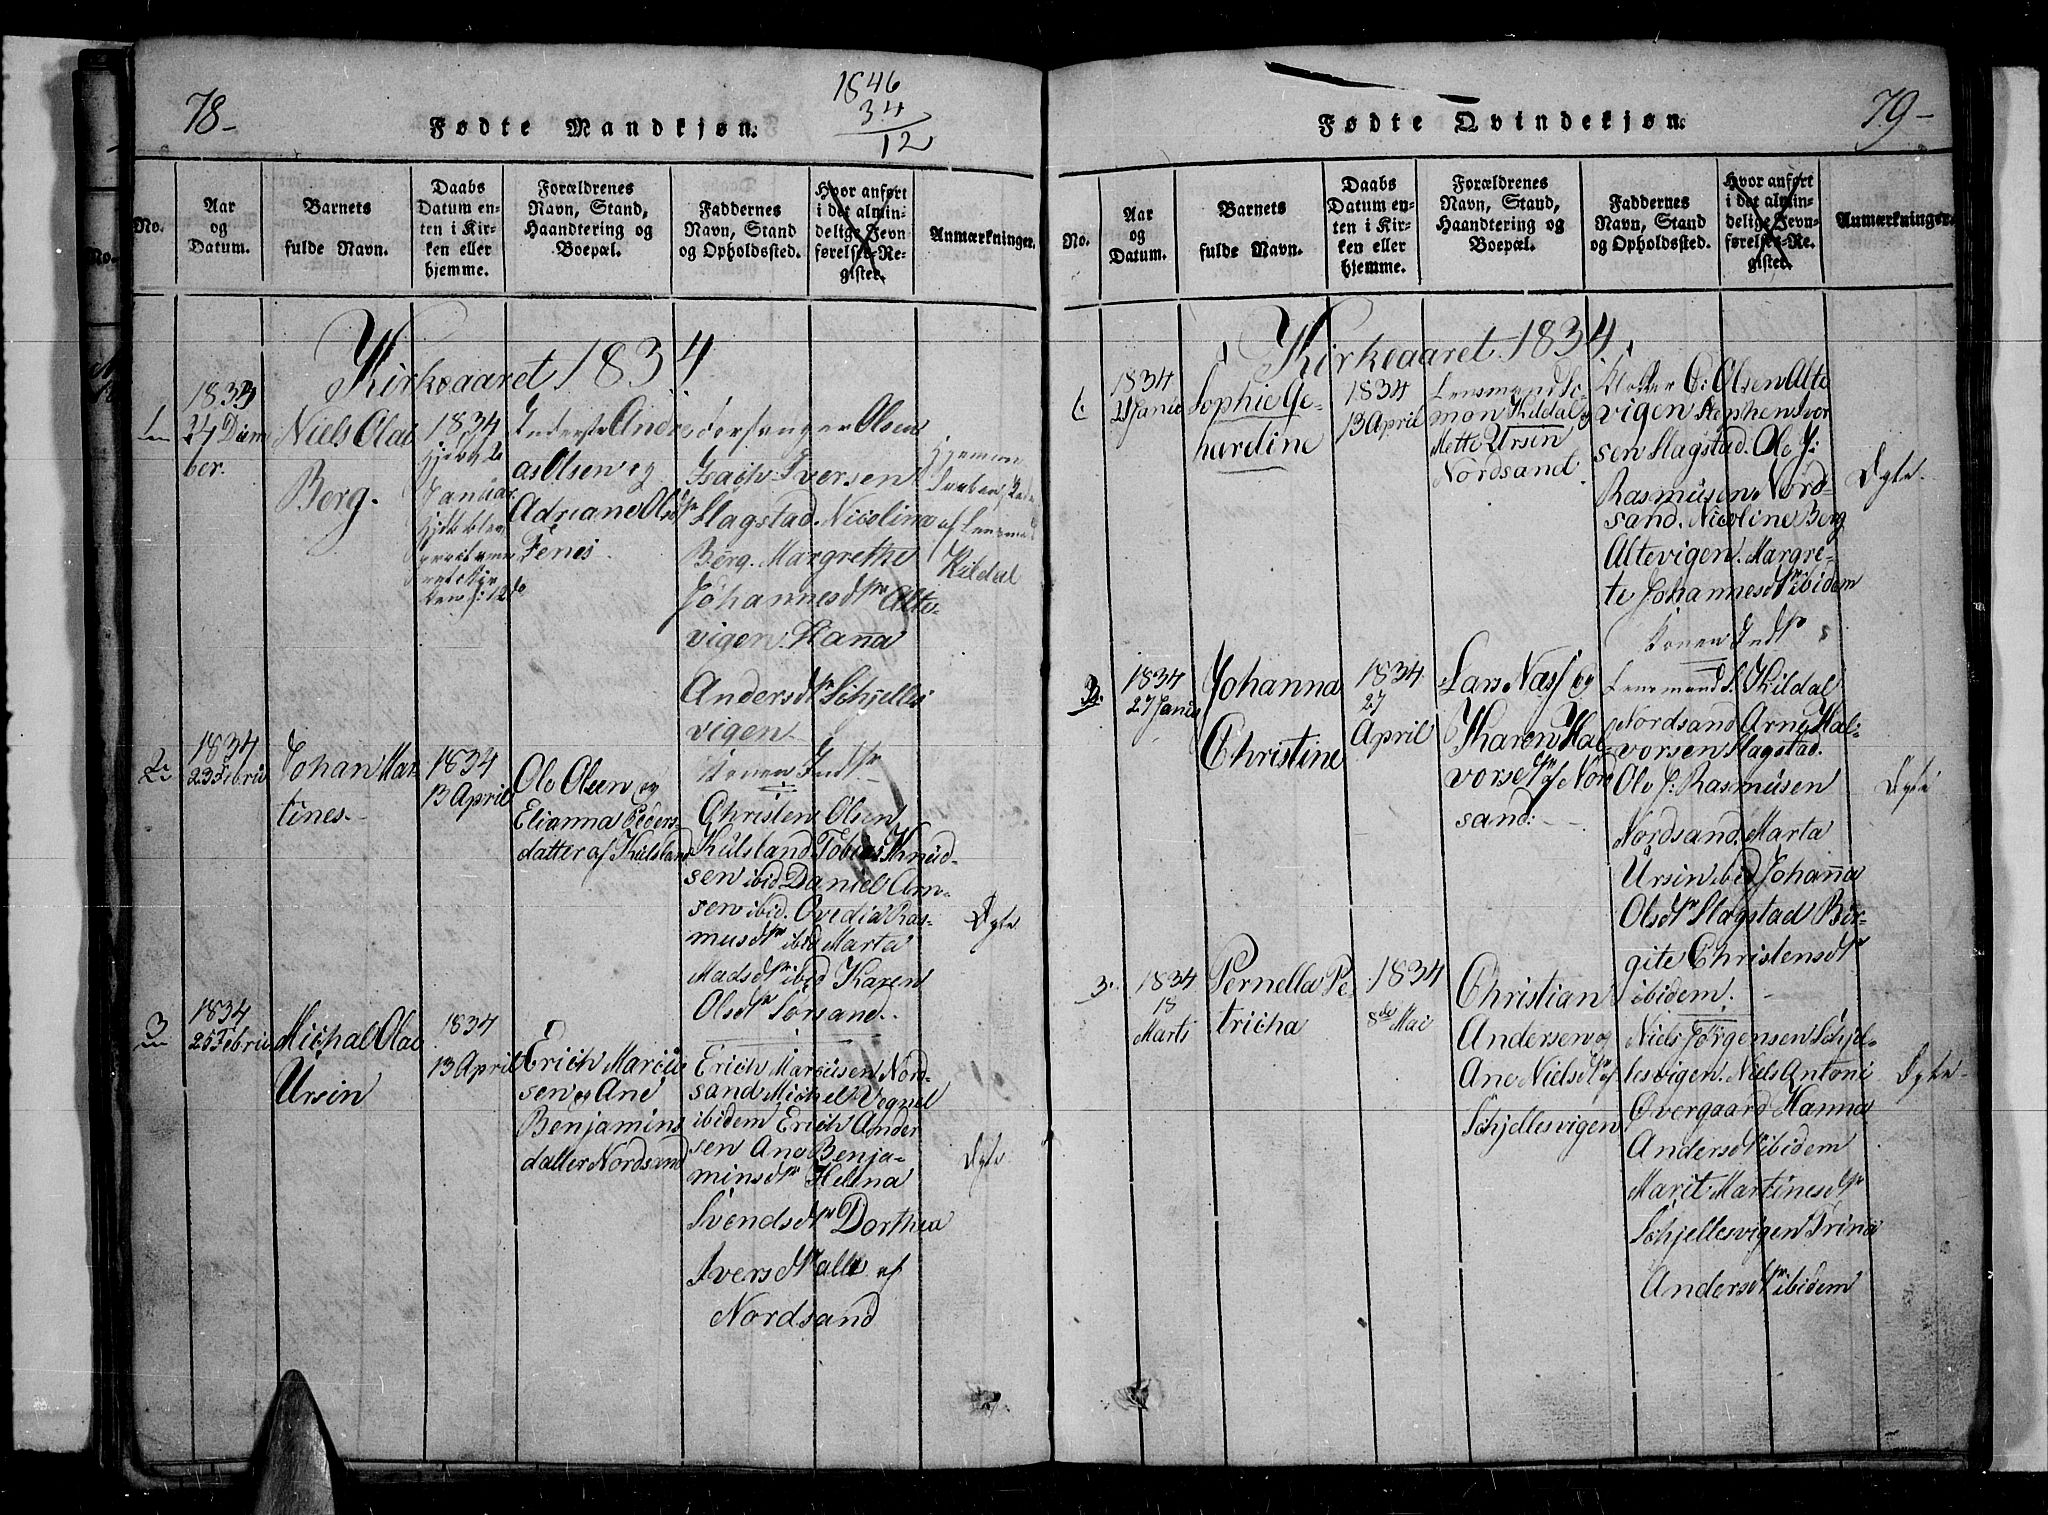 78-
1846
34
12
Fødte Mandkjøn.
No.
Aar
og
Datum.
Barnets
fulde Navn.
Daabs
Datum en-
ten i Kir-
ken eller
hjemme.
Forældrenes
Navn, Stand,
Haandtering og
Boepæl.
Faddernes
Navn, Stand
og Opholdssted.
Hvor anført
i det almin-
delige Jevn
førelses-Re-
gister.
Anmærkninger.
Kirkeaaret 1834
1833
27 Decem
ber.
Niels Olai
Berg.
1834
Januar
Andre
as Olsen og
Adriane Olsdtr
Fenes
Olsen
Isach Iversen
Slagstad. Nicoline
Berg. Margrethe
Johannesdtr Alte-
vigen. Hana
Andersdtr Schjelles
vigen
Hjemme
døbt
af Lensmand
Kildal
2
1834
23 Febru
Johan Mar
tines.
1834
13 April
Ole Olsen og
Elianna Peders
datter af Külsland
Konen Indtr
Christen Olsen
Külsland Tobias Knüd-
sen ibid Daniel Arn-
sen ibid. Ovedia Ras-
musdtr ibid Marta
Madsdtr ibid Karen
Olsdtr Sørsand.
Ægte
3
1834
25 Februa
Michal Olai
Ursin
1834
13 April
Erich Marcüs
sen og Ane
Benjamins
datter Nordsand
Erich Marcüsen Nord-
sand Michel Vognel
ibidem Erich Ander
sen Ane Benja-
minsdtr Helena
Svendsdtr Dorthea
Iversdtr alle af
Nordsand
Ægte
79-
Fødte Qvindekjøn.
No.
Aar
og
Datum.
Barnets
fulde Navn.
Daabs
Datum en-
ten i Kir-
ken eller
hjemme.
Forældrenes
Navn, Stand,
Haandtering og
Boepæl.
Faddernes
Navn, Stand
og Opholdssted.
Hvor anført
i det almin-
delige Jevn-
førelses-Re-
gister.
Anmærkninger.
Kirkeaaret 1834
1.
1834
Janu
Sophie Ge-
hardine
1834
13 April
Lensmand Si-
mon Kildal og
Mette Ursin
Nordsand
Klokker O: Olsen Alte
vigen Stephen Ivor
sen Slagstad. Ole J:
Rasmüsen Nord-
sand. Nicoline Berg
Altevigen. Margre-
te Johannesdtr ibidem
Konen Indtr
2.
1834
27 Janua
Johanna
Christine
1834
27
April
Lars Næss og
Karen Hal-
vorsdtr af Nord
sand.
Lensmand S. Kildal
Nordsand Arne Hal-
vorsen Slagstad.
Ole J: Rasmüsen
Nordsand. Marta
Ursin ibid Johanna
Olsdtr Slagstad Bir-
gite Christensdtr
ibidem.
Ægte
3.
1834
18
Marts
Pernella Pe
tricha
1834
8de Mai
Christian
Andersen og
Ane Nielsdtr af
Schjellesvigen
Niels Jørgensen Schjel-
lesvigen. Niels Antoni
Overgaard Hanna
Andersdtr ibidem
Marit Martinesdtr
Schjellesvigen Trina
Andersdtr ibidem
Ægte